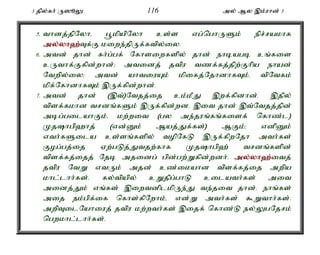 3 தில்கர் ருஸூலு 116 அல் ஆல இம்ரான் 3
5. வானத்திலோ, பூமியிலோ உள்ள எப்பொருளும் நிச்சயமாக
அல்லாஹ்வுக்கு மறைந்திருக்கவில்லை.
6. அவன் தான் கர்ப்பக் கோளறைகளில் தான் நாடியபடி உங்களை
உருவாக்குகின்றான்; அவனைத் தவிர வணக்கத்திற்குரிய நாயன்
வேறில்லை; அவன் யாவரையும் மிகைத்தோனாகவும், விவேகம்
மிக்கோனாகவும் இருக்கின்றான்.
7. அவன் தான் (இவ்)வேதத்தை உம்மீது இறக்கினான். இதில்
விளக்கமான வசனங்களும் இருக்கின்றன. இவை தான் இவ்வேதத்தின்
அடிப்படையாகும். மற்றவை (பல அந்தரங்கங்களைக் கொண்ட)
முதஷாபிஹாத் (என்னும் ஆயத்துக்கள்) ஆகும்; எனினும்
எவர்களுடைய உள்ளங்களில் வழிகேடு இருக்கிறதோ அவர்கள்
குழப்பத்தை ஏற்படுத்துவதற்காக முதஷாபிஹ் வசனங்களின்
விளக்கத்தைத் தேடி அதனைப் பின்பற்றுகின்றனர். அல்லாஹ்வைத்
தவிர வேறு எவரும் அதன் உண்மையான விளக்கத்தை அறிய
மாட்டார்கள். கல்வியில் உறுதிப்பாடு உடையவர்கள் அவை
அனைத்தும் எங்கள் இறைவனிடமிருந்து வந்தவை தான். நாங்கள்
அதை நம்பிக்கை கொள்கிறோம், என்று அவர்கள் கூறுவார்கள்.
அறிவுடையோரைத் தவிர மற்றவர்கள் இதைக் கொண்டு நல்லுபதேசம்
பெறமாட்டார்கள்.